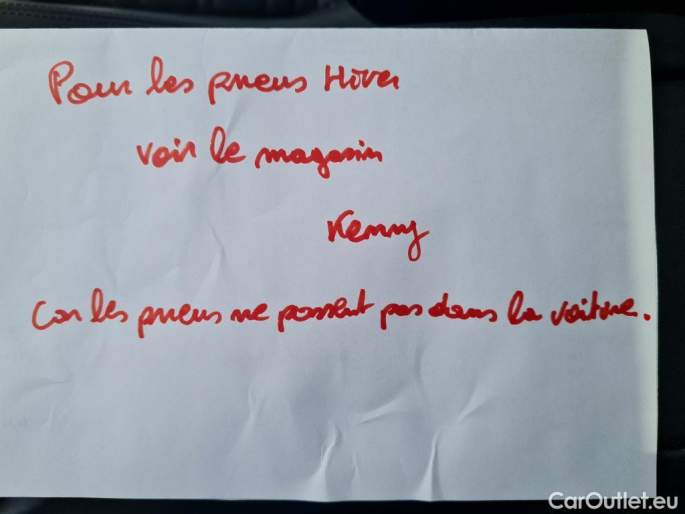 Pour les pneus Hiver
voir le magasin
Kenny
Car les pneus ne passent pas dans la voiture.
CarOutlet.eu